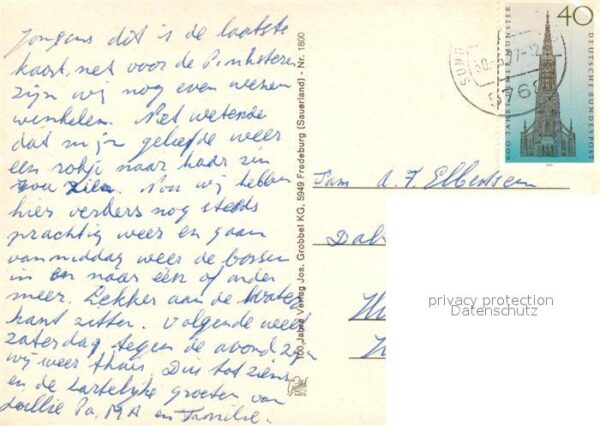 Jongens dit is de laatste
kaart, net voor de Pinksteren
zijn wij nog even wezen
winkelen. Niet wetende
dat mijn geliefde weer
een rokje naar haar zin
zou zien. Nou wij hebben
hier verders nog steeds
prachtig weer en gaan
van middag weer de bossen
in en naar één of ander
meer. Lekker aan de water
kant zitten. Volgende week
zaterdag tegen de avond zijn
wij weer thuis. Dus tot ziens
en de hartelijke groeten van
Pa, MA en Familie.
100 Jahre Verlag Jos. Grobbel KG, 5949 Fredeburg (Sauerland) - Nr. 1800
Fam A. J. Elbertsen
privacy protection
Datenschutz
40
600 JAHRE ULMER MÜNSTER
DEUTSCHE BUNDESPOST
576